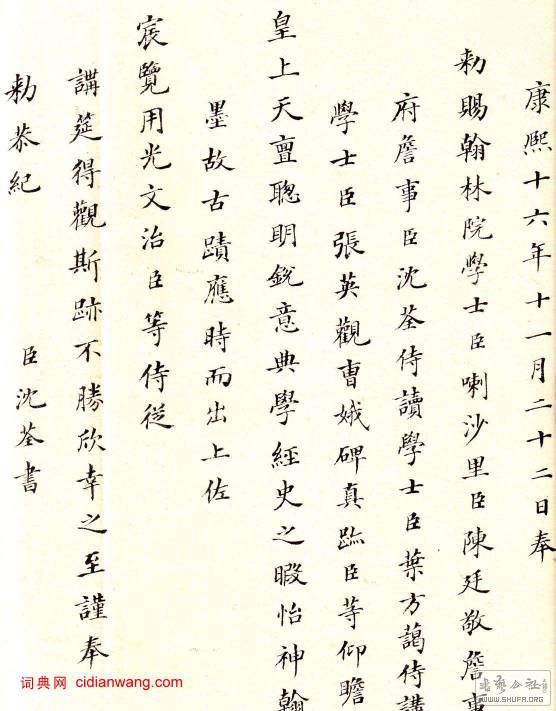 康熙十六年十一月二十二日奉
勑賜翰林院學士臣喇沙里臣陳廷敬詹事
府詹事臣沈荃侍讀學士臣葉方藹侍講
學士臣張英觀曹娥碑真跡臣等仰瞻
皇上天亶聰明銳意典學經史之暇怡神翰
墨故古蹟應時而出上佐
宸覽用光文治臣等侍從
講筵得觀斯跡不勝欣幸之至謹奉
勑恭紀
臣沈荃書
词典网 cidianwang.com
书艺公社
www.SHUFA.ORG